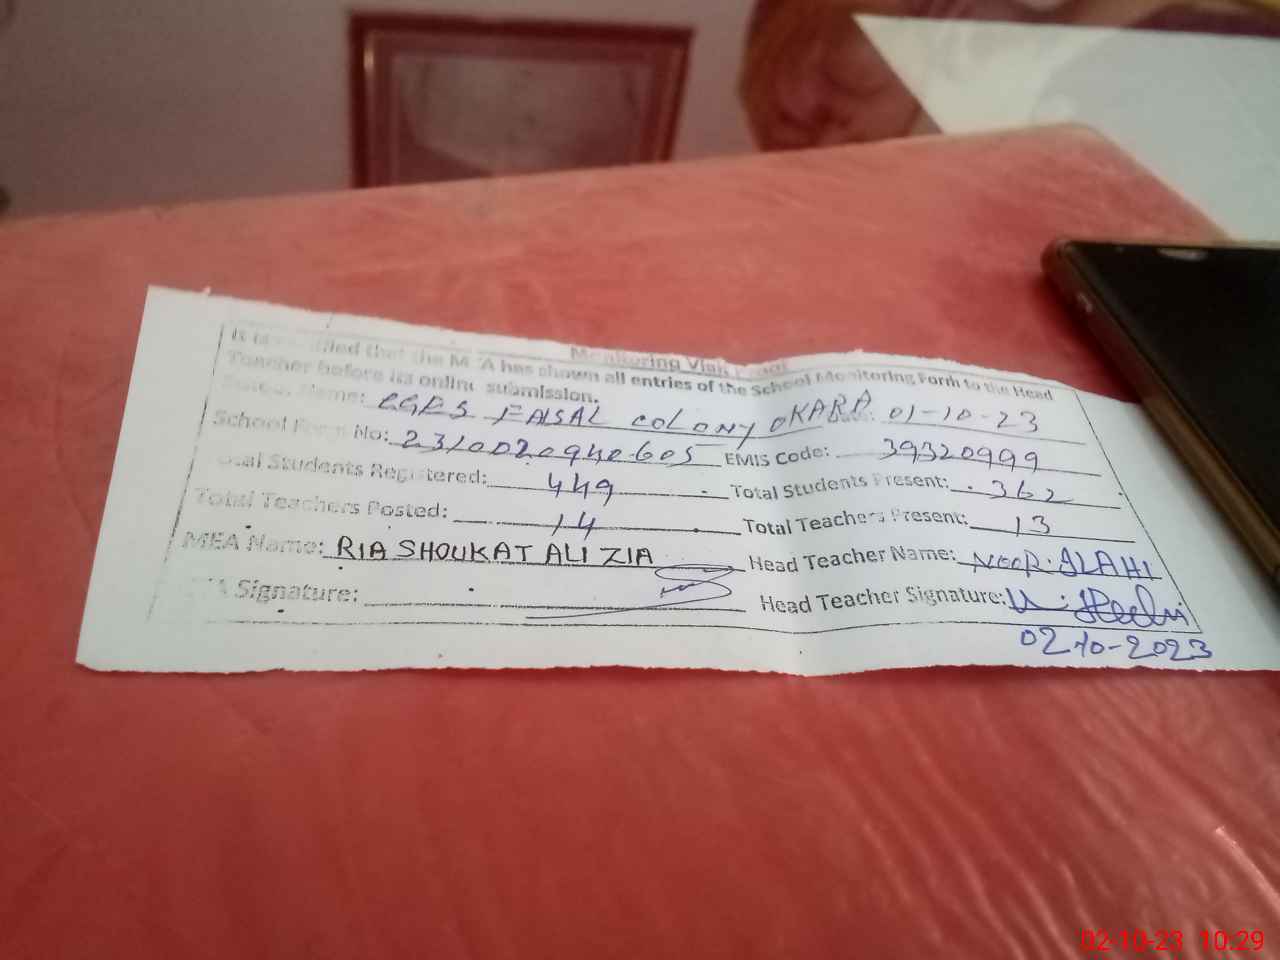 Monitoring Visit Proof
It is certified that the MEA has shown all entries of the School Monitoring Form to the Head
Teacher before its online submission.
School Name: FAISAL COLONY OKARA Date: 01-10-23
School Form No: EMIS Code: 39320999
Total Students Registered: 449 Total Students Present: 362
Total Teachers Posted: 14 Total Teachers Present: 13
MEA Name: RIA SHOUKAT ALI ZIA Head Teacher Name: NOOR.ILAHI
MEA Signature: Head Teacher Signature:
02-10-2023
02-10-23 10:29